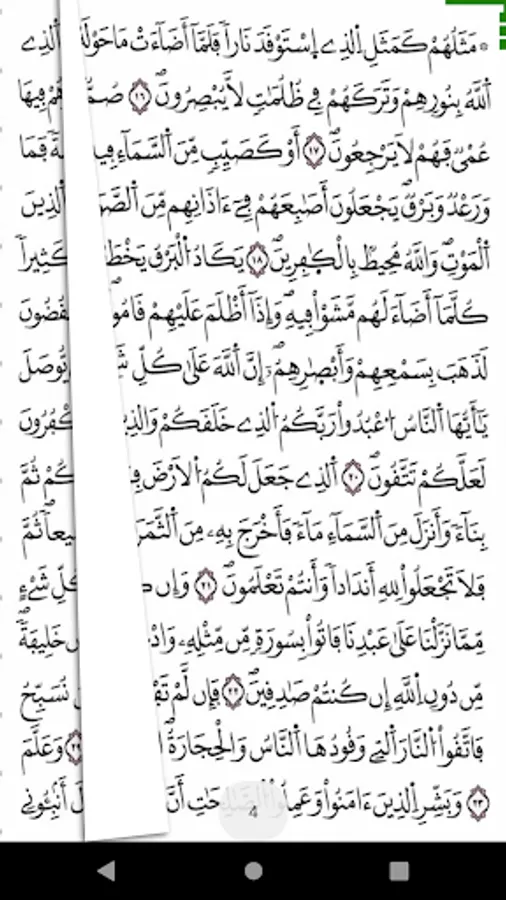 مَثَلُهُمْ كَمَثَلِ اِلذِے اِسْتَوْقَدَ نَاراٗ فَلَمَّآ أَضَآءَتْ مَا حَوْلَهُۥ اَ۬لذِے
اَ۬للَّهُ بِنُورِهِمْ وَتَرَكَهُمْ فِے ظُلُمَٰتٖ لَّا يُبْصِرُونَۖ ١٦ صُمُّۢ هُمْ فِيهَا
عُمْيٞ فَهُمْ لَا يَرْجِعُونَۖ ١٧ أَوْ كَصَيِّبٖ مِّنَ اَ۬لسَّمَآءِ فِيهِ فَمَا
وَرَعْدٞ وَبَرْقٞ يَجْعَلُونَ أَصَٰبِعَهُمْ فِےٓ ءَاذَانِهِم مِّنَ اَ۬لصَّوَٰعِقِ اَ۬لذِينَ
اَ۬لْمَوْتِۖ وَاللَّهُ مُحِيطُۢ بِالْكٰ۪فِرِينَۖ ١٨ يَكَادُ اُ۬لْبَرْقُ يَخْطَفُ كَثِيراٗ
كُلَّمَآ أَضَآءَ لَهُم مَّشَوْاْ فِيهِۖ وَإِذَآ أَظْلَمَ عَلَيْهِمْ قَامُواْۖ
لَذَهَبَ بِسَمْعِهِمْ وَأَبْصٰ۪رِهِمُۥٓۖ إِنَّ اَ۬للَّهَ عَلَىٰ كُلِّ يُّوصَلَ
يَٰٓأَيُّهَا اَ۬لنَّاسُ اُ۟عْبُدُواْ رَبَّكُمُ اُ۬لذِے خَلَقَكُمْ وَالذِينَ تَكْفُرُونَ
لَعَلَّكُمْ تَتَّقُونَۖ ٢٠ اَ۬لذِے جَعَلَ لَكُمُ اُ۬لَارْضَ ثُمَّ
بِنَآءٗ وَأَنزَلَ مِنَ اَ۬لسَّمَآءِ مَآءٗ فَأَخْرَجَ بِهِۦ مِنَ اَ۬لثَّمَرَٰتِ جَمِيعاٗۖ ثُمَّ
فَلَا تَجْعَلُواْ لِلهِ أَندَاداٗ وَأَنتُمْ تَعْلَمُونَۖ ٢١ وَإِن كُلِّ شَےْءٍ
مِّمَّا نَزَّلْنَا عَلَىٰ عَبْدِنَا فَاتُواْ بِسُورَةٖ مِّن مِّثْلِهِۦ وَادْعُواْ خَلِيفَةٗۖ
مِّن دُونِ اِ۬للَّهِ إِن كُنتُمْ صَٰدِقِينَۖ ٢٢ فَإِن لَّمْ نُسَبِّحُ
فَاتَّقُواْ اُ۬لنَّارَ اَ۬لتِے وَقُودُهَا اَ۬لنَّاسُ وَالْحِجَارَةُۖ وَعَلَّمَ
٢٣ وَبَشِّرِ اِ۬لذِينَ ءَامَنُواْ وَعَمِلُواْ اُ۬لصَّٰلِحَٰتِ أَنَّ أَنۢبِـُٔونِے
4